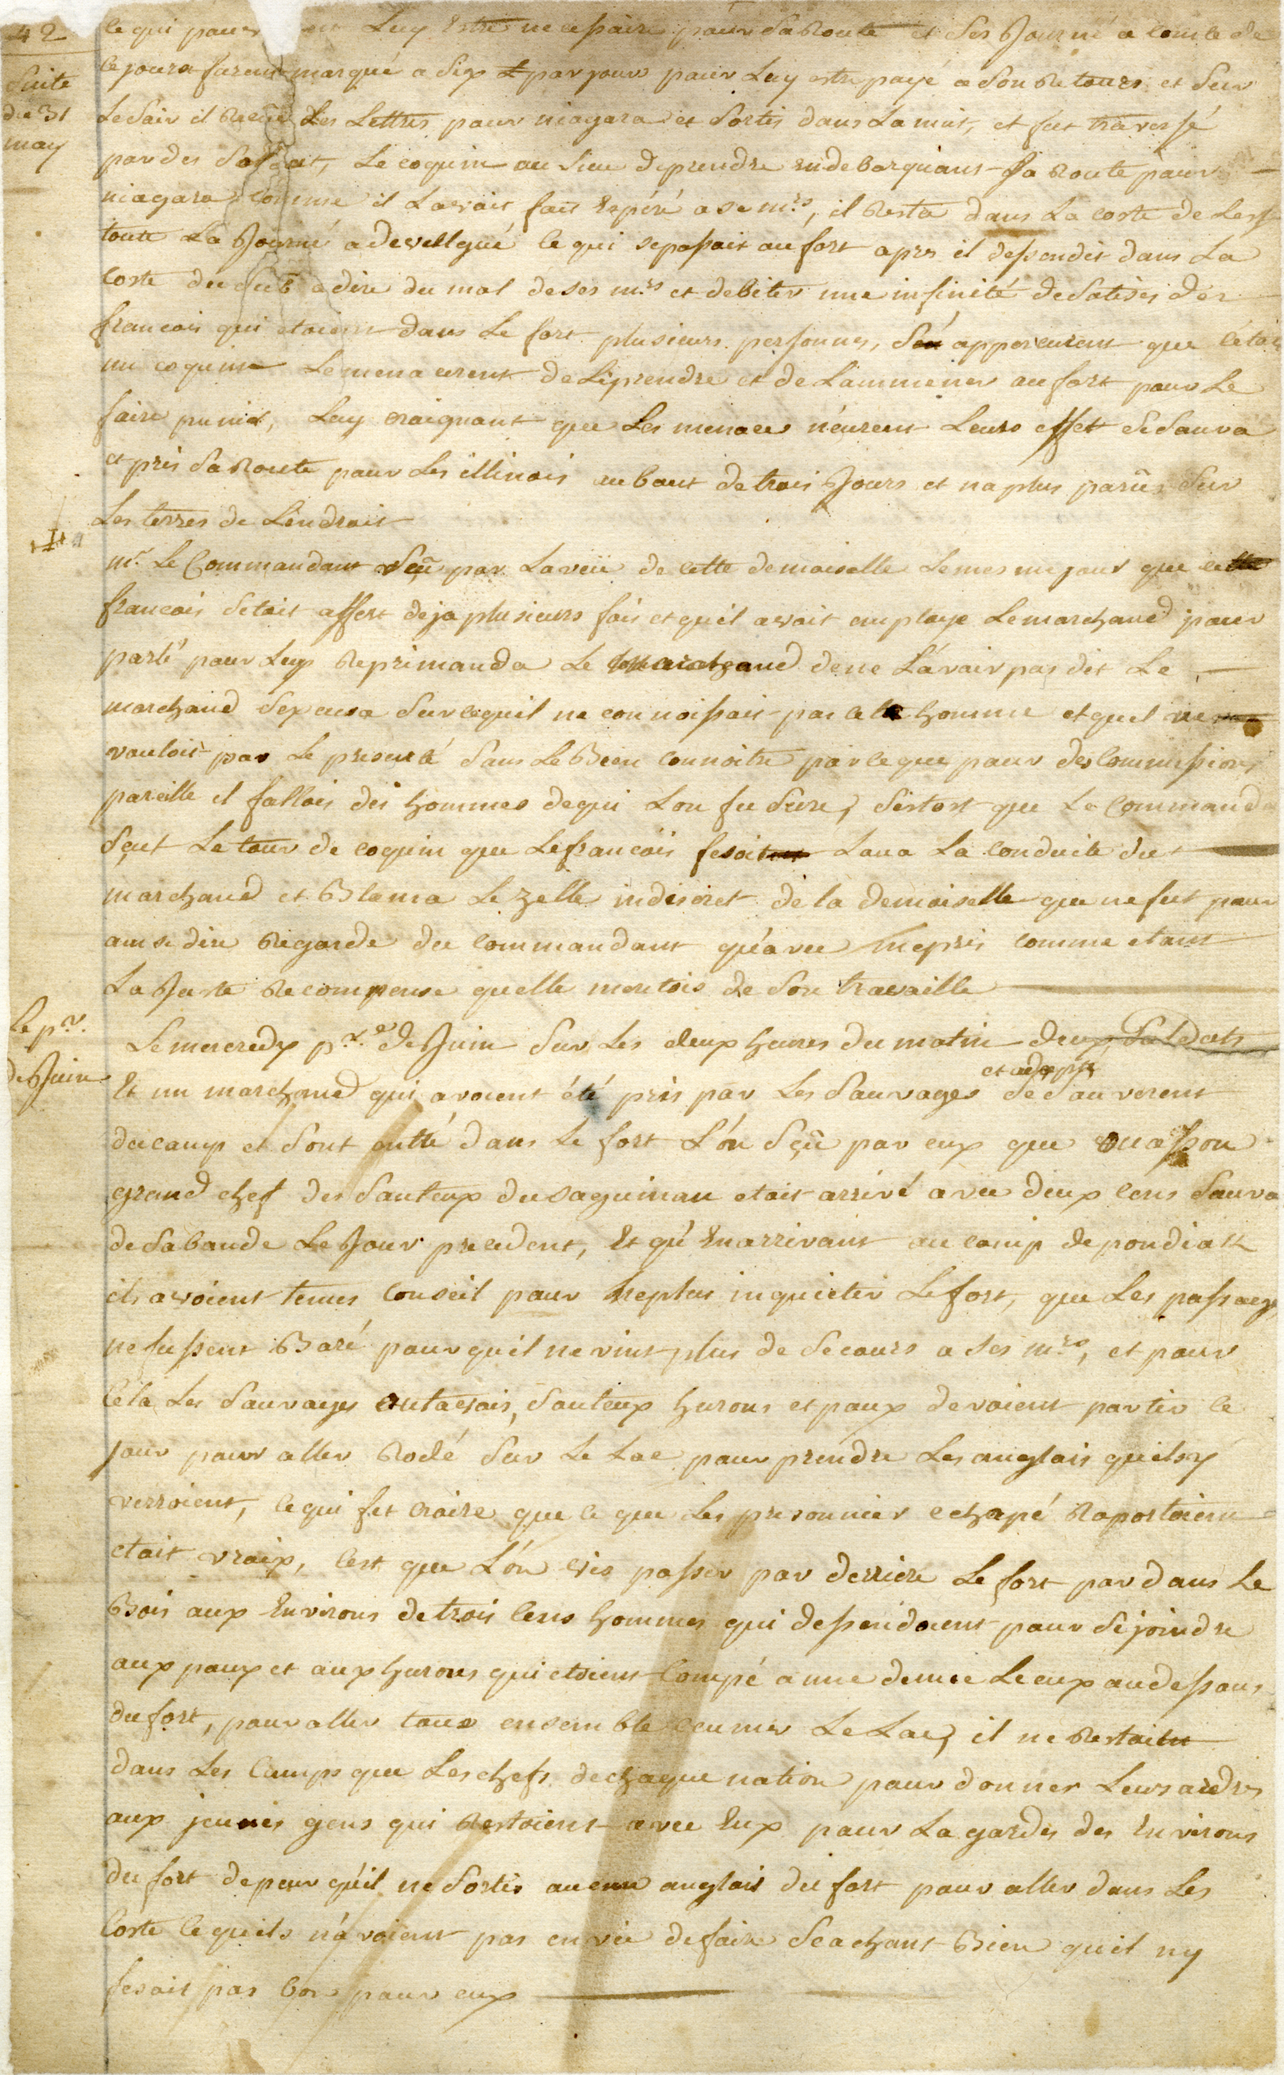 42
Suite
du 31
may
ce qui pouvoit Luy Estre necessaire pour sa Route et ses Journé a comté de
ce jours furent marqué a dix # par jour pour Luy estre payé a son Retours et sur
Le Soir il Recut Les Lettres pour niagara et Sortis dans La nuit, et fut traversé
par des Soldat, Le coquin au lieu de prendre En debarquans Sa Route pour
niagara comme il L'avoit fait Espéré a se mrs, il Resta dans La coste de Lest
toute La Journé a devellgué ce qui se passait au fort apres il dessendit dans La
Coste du Sud a dire du mal de ses mrs et debiter une infinité de Sotises des
francois qui etoient dans Le fort plusieurs personnes, S'en apporcurent que cétoit
un coquin Le menacerent de Le prendre et de Lammener au fort pour Le
faire punir, Luy craignant que Les menace n'eurent Leurs effet Se Sauva
et pris Sa Route pour Les illinois au bout de trois Jours et na plus parüe Sur
Les terres de Lendroit
mr Le Commandant Sçû par La veüe de cette demoiselle Le mesme jour que ce
francois Setoit offert deja plusieurs fois et quil avoit employe Le marchand pour
parlé pour Luy Reprimanda Le marchand de ne L'avoir pas dit Le
marchand Sexcusa Sur ce quil ne connoissait pas cete homme et quel ne
vouloit pas Le presenté Sans Le Bien connoitre parce que pour des Commissions
pareille il falloit des hommes de qui Lon fu Sure, Sistost que Le Command
Sçut Le tour de coquin que Le francois fesoit Loua La conduite du
marchand et Blama Le zelle indiscret de la demoiselle que ne fut pour
ainsi dire Regardé du commandant qu'avec mepris comme etant
La Juste Recompense quelle meritois de Son travaille
Le pr.
de Juin
Le mercredy pr. de Juin Sur Les deux heures du matin deux Soldats
Et un marchand qui avoient été pris par Les Sauvages Se Sauverent
du camp et Sont entré dans Le fort L'ón Sçû par eux que ouasson
grand chef des Sauteux du Saguinau etait arrivé avec deux cens Sauva
de Sa bande Le Jour precedent, Et qu'En arrivant au camp de pondiak
ils avoient tenus Conseil pour ne plus inquieter Le fort, que Les passage
ne fussent Baré pour quil ne vint plus de Secours a Ses mrs, et pour
cela Les Sauvages outavois, Sauteux hurons et poux devoient partir ce
jour pour aller Rodé Sur Le Lac pour prendre Les anglais quils y
verroient, ce qui fit croire que ce que Les prisonnier echapé Raportoient
etait vraix, Cest que L'ón vis passer par derriere Le fort par dans Le
Bois aux Environs de trois Cens hommes qui dessendoient pour Se joindre
aux poux et aux hurons qui etoient Campé a une demie Lieux au dessous
du fort, pour aller tous ensemble ecumer Le Lac, il ne Restoit
dans Les Camps que Les chefs de chaque nation pour donner Leurs ordres
aux jeunes gens qui Restoient avec Eux pour La gardes des Environs
du fort de peur qu'il ne Sortis aucun anglais du fort pour aller dans Les
Coste ce quils n'avoient pas envie de faire Seachant Bien quil ny
fesait pas bon pour eux